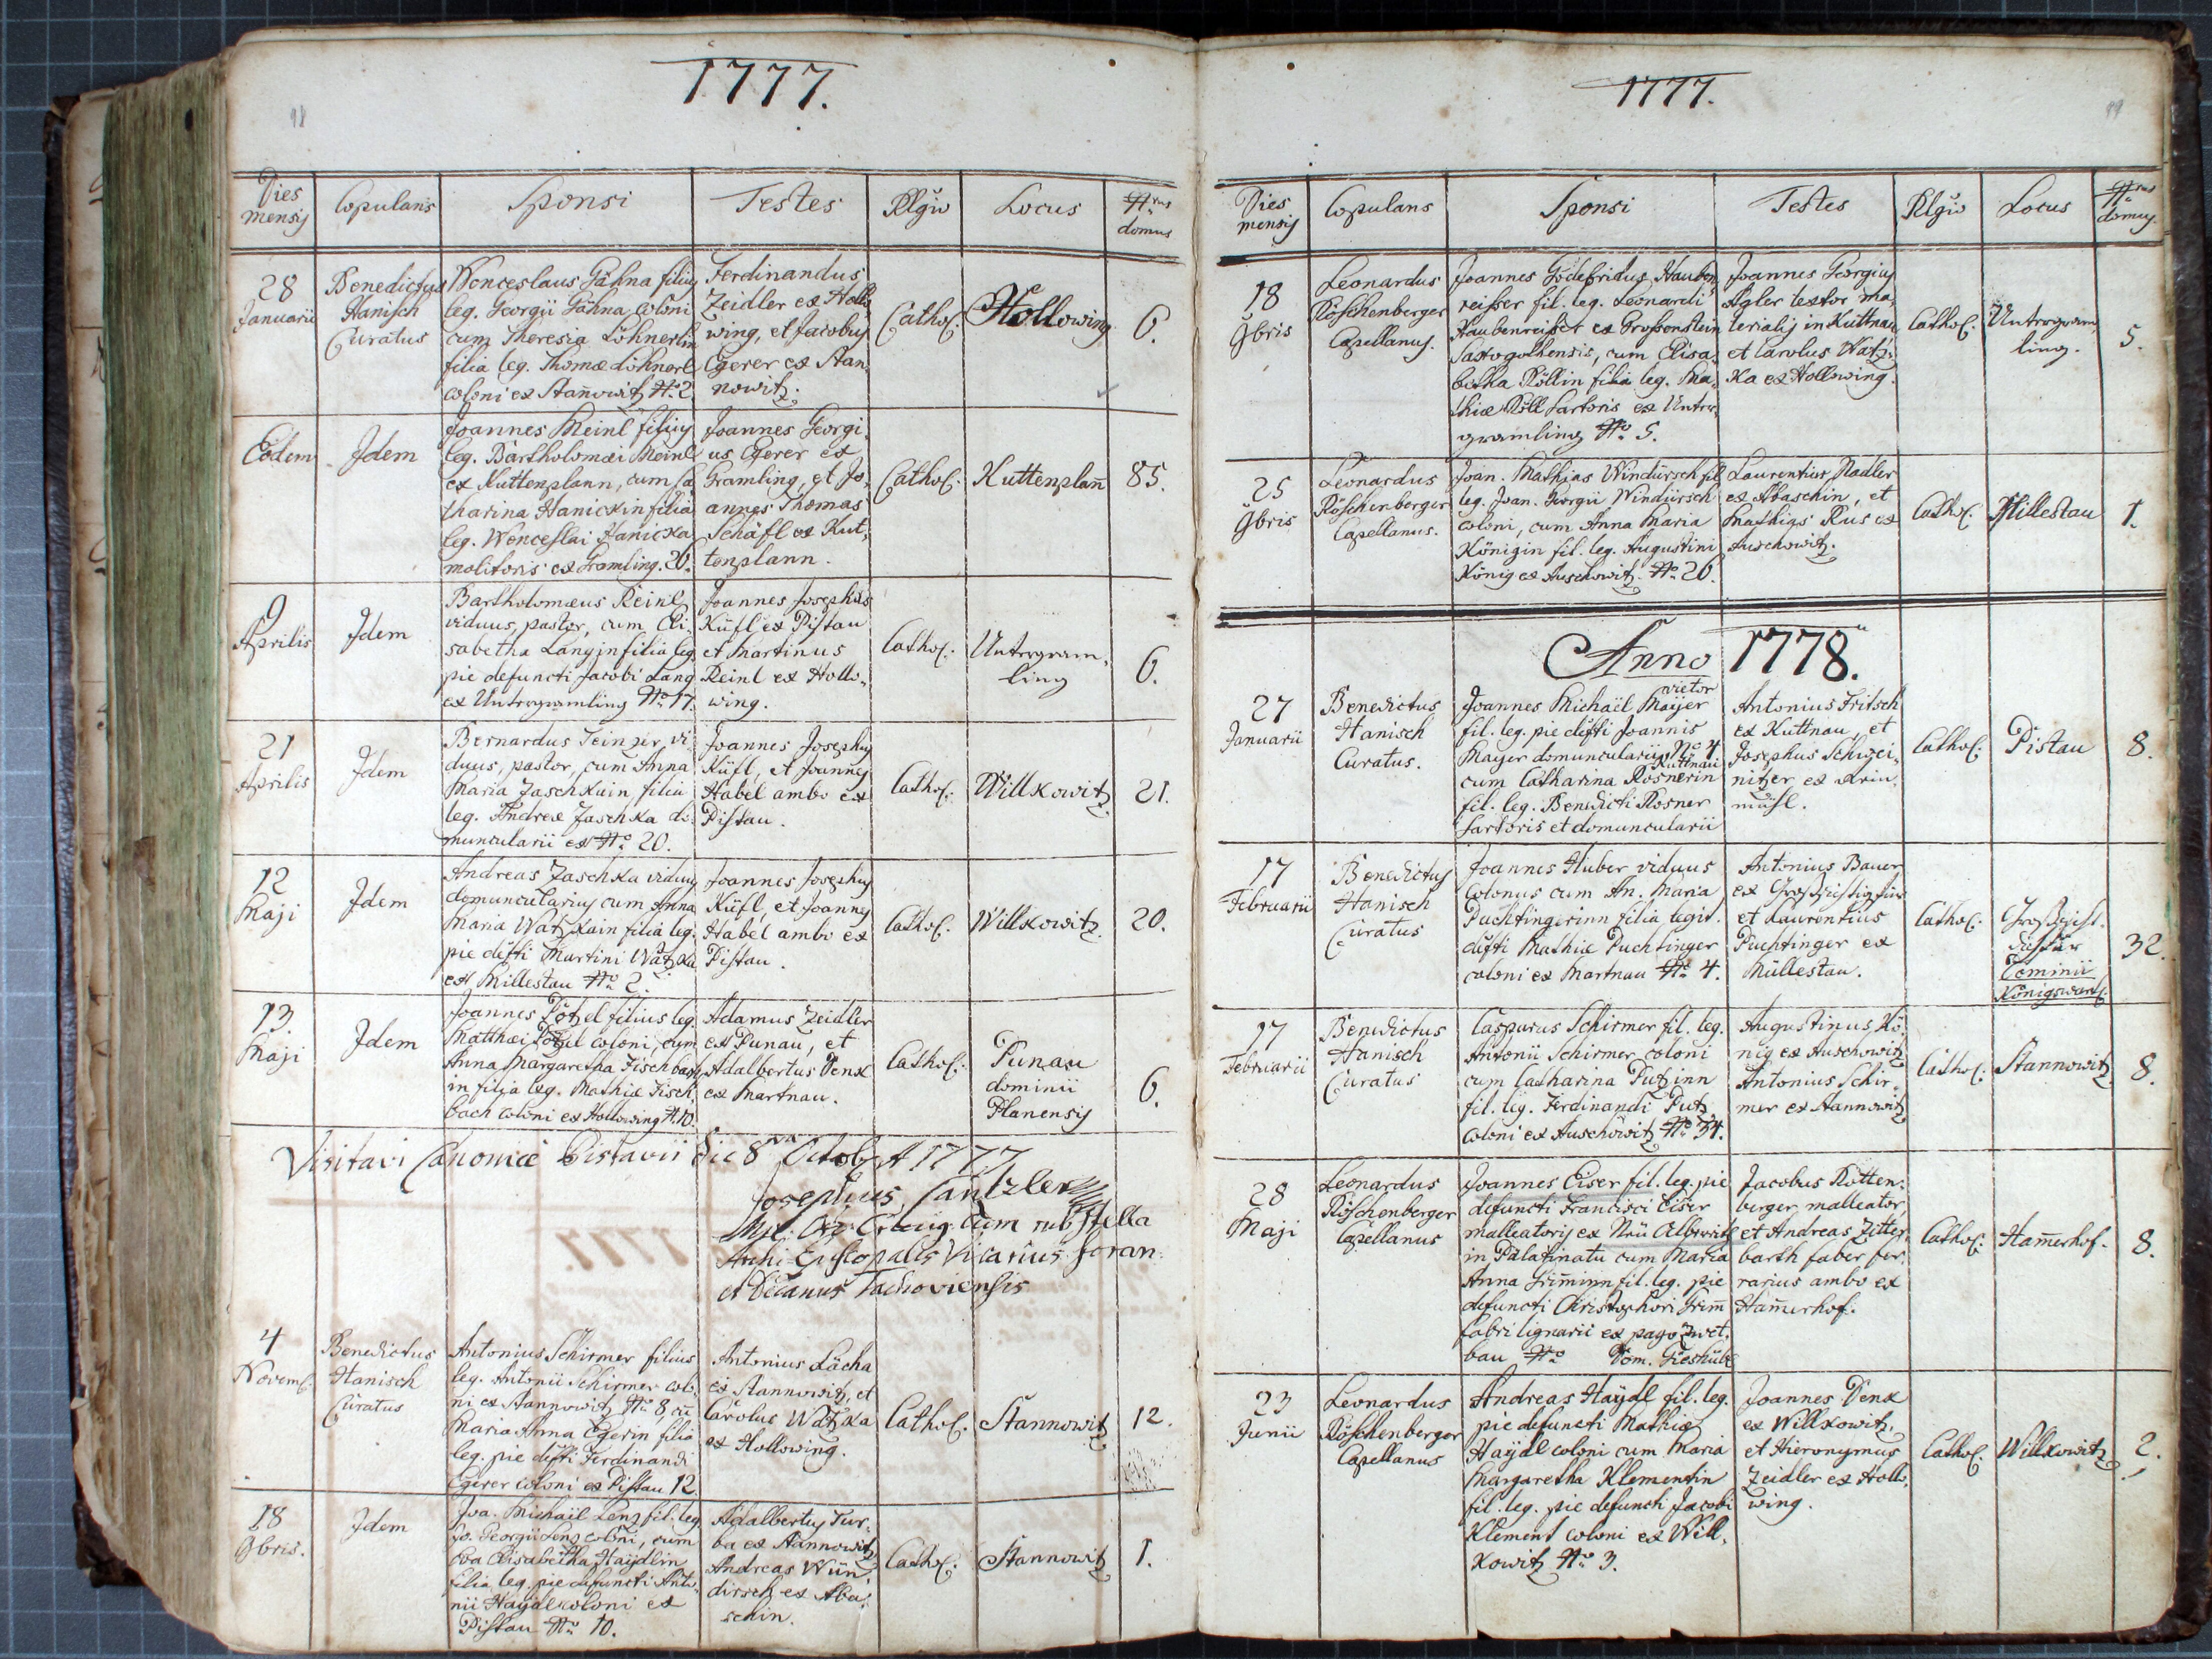 1777.
98
Dies mensis
Copulans
Sponsi
Testes
Rlgio
Locus
Nrus domus
28 Januarii
Benedictus
Hanisch
Curatus
Wenceslaus Gähna filius
leg. Georgii Gähna coloni
cum Theresia Löhnerlin
filia leg. Thomæ Löhnerl
coloni ex Stañowitz No 2.
Ferdinandus
Zeidler ex Hollo
wing, et Jacobus
Egerer ex Stan
nowitz.
Cathol.
Hollowing
6.
Eodem
Idem
Joannes Meinl filius
leg. Bartholomæi Meinl
ex Kuttenplann, cum Ca
tharina Hanickin filia
leg. Wenceslai Hanicka
molitoris ex Gramling. 20.
Joannes Georgi
us Egerer ex
Gramling, et Jo
annes Thomas
Schäfl ex Kut
tenplann.
Cathol.
Kuttenplañ
85.
9
Aprilis
Idem
Bartholomæus Reinl
viduus, pastor, cum Eli
sabetha Langin filia leg.
pie defuncti Jacobi Lang
ex Untergramling No 17.
Joannes Josephus
Küfl ex Pistau
et Martinus
Reinl ex Hollo
wing.
Cathol.
Untergram
ling
6.
21
Aprilis
Idem
Bernardus Teinzer vi
duus, pastor, cum Anna
Maria Zaschkain filia
leg. Andreæ Zaschka do
muncularii ex No 20.
Joannes Josephus
Küfl, et Joannes
Habel ambo ex
Pistau.
Cathol.
Willkowitz
21.
12
Maji
Idem
Andreas Zaschka viduus
domuncularius cum Anna
Maria Watzkain filia leg.
pie defti Martini Watzka
ex Millestau No 2.
Joannes Josephus
Küfl, et Joannes
Habel ambo ex
Pistau.
Cathol.
Willkowitz
20.
13.
Maji
Idem
Joannes Lötzel filius leg.
Matthæi coloni, cum
Anna Margaretha Fischbach
in filia leg. Mathiæ Fisch
bach coloni ex Hollowing No 10.
Adamus Zeidler
ex Punau, et
Adalbertus Denk
ex Martnau.
Cathol.
Punau
dominii
Planensis
6.
Visitavi Canonicè Pistavii die 8va Octob. A 1777
Josephus Cantzler
cum rub. stella
Archi Episcopalis Vicarius foran.
et Decanus Tachoviensis
4
Novemb.
Benedictus
Hanisch
Curatus
Antonius Schirmer filius
leg. Antonii Schirmer colo
ni ex Stannowitz No 8, cũ
Maria Anna Egerin filia
leg. pie defti Ferdinandi
Egerer coloni ex Pistau 12.
Antonius Lächa
ex Stannowitz, et
Carolus Watzka
ex Hollowing.
Cathol.
Stannowitz
12.
18
9bris.
Idem
Joa. Michaël Lenz fil. leg.
Jo. Georgii Lenz coloni, cum
Eva Elisabetha Haÿdlin
filia leg. pie defuncti Anto
nii Haÿdl coloni ex
Pistau No 10.
Adalbertus Tur
ba ex Stannowitz
Andreas Wün
dirsch ex Aba
schin.
Cathol.
Stannowitz
1.
1777.
99
Dies mensis
Copulans
Sponsi
Testes
Rlgio
Locus
Nrus domus
18
9bris
Leonardus
Röschenberger
Capellanus.
Joannes Godefridus Hauben
reisser fil. leg. Leonardi
Haubenreisser ex Grossenstein
cum Elisa
betha Röllin filia leg. Ma
thiæ Röll sartoris ex Unter
gramling No. 5.
Joannes Georgius
Agler textor ma
terialis in Kuttnau
et Carolus Watz
ka ex Hollowing.
Cathol.
Untergram
ling.
5.
25
9bris
Leonardus
Röschenberger
Capellanus.
Joan. Mathias Windürsch fil.
leg. Joan. Georgii Windürsch
coloni, cum Anna Maria
Königin fil. leg. Augustini
König ex Auschowitz. No. 26.
Laurentius Nadler
ex Abaschin, et
Mathias Rus ex
Auschowitz.
Cathol.
Millestau
1.
Anno 1778.
27
Januarii
Benedictus
Hanisch
Curatus.
vietor
Joannes Michaël Maÿer
fil. leg. pie defti Joannis
Mayer domuncularii No 4
Kuttnau
cum Catharina Rosnerin
fil. leg. Benedicti Rosner
sartoris et domuncularii
Antonius Fritsch
ex Kuttnau, et
Josephus Schwei
nitzer ex
mühl.
Cathol.
Pistau
8.
17
Februarii
Benedictus
Hanisch
Curatus
Joannes Huber viduus
colonus cum An. Maria
Puchtingerinn filia legit.
defti Mathiæ Puchtinger
coloni ex Martnau No 4.
Antonius Bauer
ex
et Laurentius
Puchtinger ex
Müllestau.
Cathol.
Dominii
Königswart.
32.
17
Februarii
Benedictus
Hanisch
Curatus
Casparus Schirmer fil. leg.
Antonii Schirmer coloni
cum Catharina Putzinn
fil. leg. Ferdinandi Putz
coloni ex Auschowitz No 34.
Augustinus Kö
nig ex Auschowitz
Antonius Schir
mer ex Stannowitz
Cathol.
Stannowitz
8.
28
Maji
Leonardus
Röschenberger
Capellanus
Joannes Eiser fil. leg. pie
defuncti Francisci Eiser
malleatoris ex Neü
in Palatinatu cum Maria
Anna Grim̃inn fil. leg. pie
defuncti Christophori Grim̃
fabri lignarii ex pago Zwet
bau No Dom. Gieshübl
Jacobus Rotten
berger malleator,
et Andreas Zitter
barth faber fer
rarius ambo ex
Ham̃erhof.
Cathol.
Ham̃erhof.
8.
23
Junii
Leonardus
Röschenberger
Capellanus
Andreas Haÿdl fil. leg.
pie defuncti Mathiæ
Haÿdl coloni cum Maria
Margaretha Klementin
fil. leg. pie defuncti Jacobi
Klement coloni ex Will
kowitz No 3.
Joannes Denk
ex Willkowitz
et Hieronymus
Zeidler ex Hollo
wing.
Cathol.
Willkowitz
2.